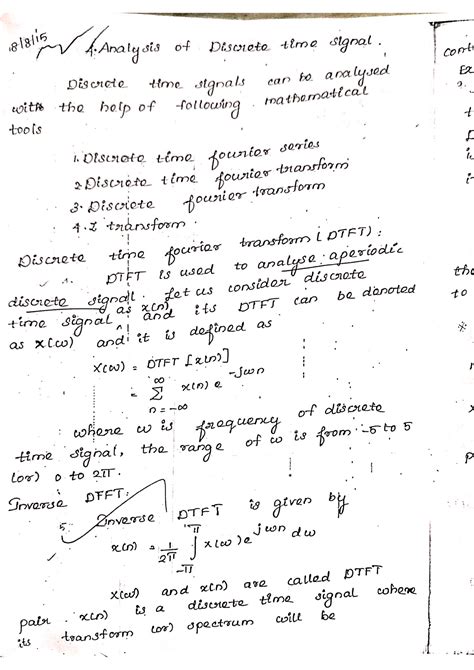 18/8/15
4. Analysis of Discrete time signal.
Discrete time signals can be analysed
with the help of following mathematical
tools
1. Discrete time fourier series
2. Discrete time fourier transform
3. Discrete fourier transform
4. Z transform.
Discrete time fourier transform (DTFT):
DTFT is used to analyse aperiodic
discrete signal. Let us consider discrete
time signal as x(n) and its DTFT can be denoted
as X(ω) and it is defined as
X(ω) = DTFT [x(n)]
= ∞ Σ n = -∞ x(n) e^-jωn
where ω is frequency of discrete
time signal, the range of ω is from -5 to 5
(or) 0 to 2π.
Inverse DTFT:
5. Inverse DTFT is given by
x(n) = 1/2π ∫ -π π X(ω) e^jωn dω
X(ω) and x(n) are called DTFT
pair. x(n) is a discrete time signal where
its transform (or) spectrum will be
cont
Ex
the
to